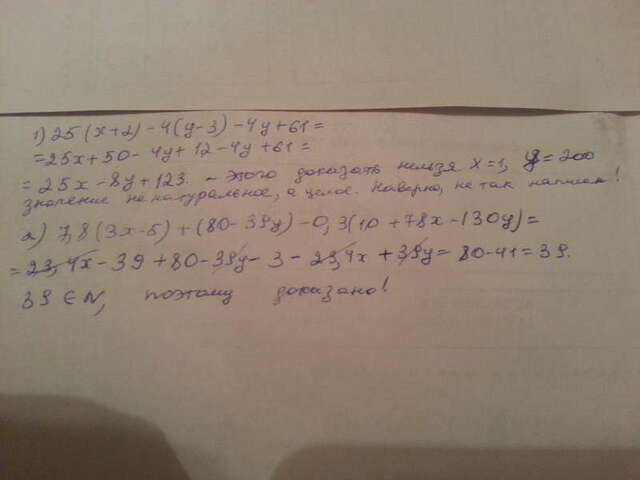 1) 25(x+2)-4(y-3)-4y+61=
=25x+50-4y+12-4y+61=
=25x-8y+123. - этого доказать нельзя x=1, y=200
значение не натуральное, а целое. Наверно, не так написан!
2) 7,8(3x-5)+(80-39y)-0,3(10+78x-130y)=
=23,4x-39+80-39y-3-23,4x+39y=80-41=39.
39 ∈ N, поэтому доказано!